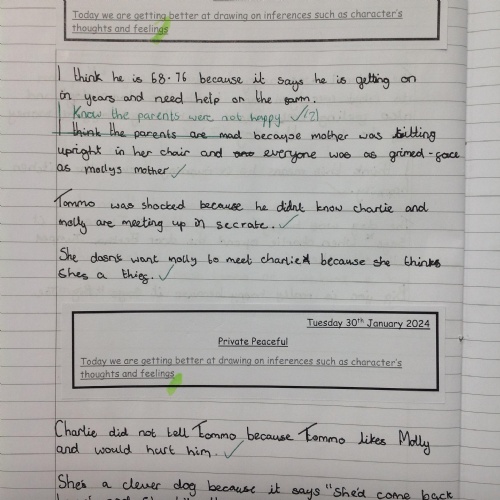 Today we are getting better at drawing on inferences such as character's
thoughts and feelings
I think he is 68-76 because it says he is getting on
in years and need help on the
I Know the parents were not happy
I think the parents are mad because mother was sitting
upright in her chair and everyone was as grimed-face
as mollys mother
Tommo was shocked because he didnt know charlie and
molly are meeting up in secrate.
She dasnt want molly to meet charlie because she thinks
Shes a thieg.
Tuesday 30th January 2024
Private Peaceful
Today we are getting better at drawing on inferences such as character's
thoughts and feelings
Charlie did not tell Tommo because Tommo likes Molly
and would hurt him.
She's a clever dog because it says "she'd come back